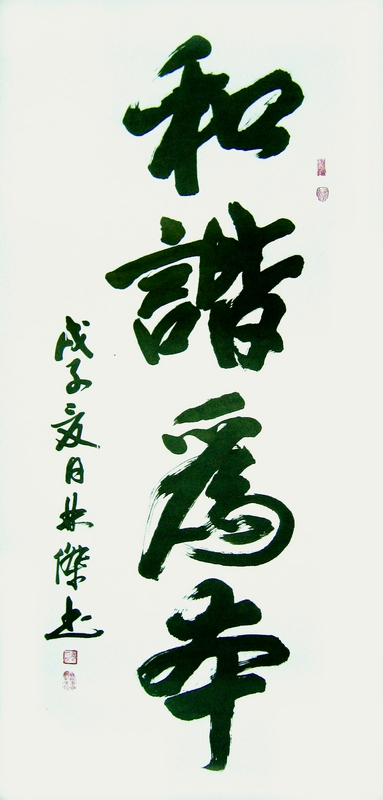 和諧爲本
戊子夏日林傑书